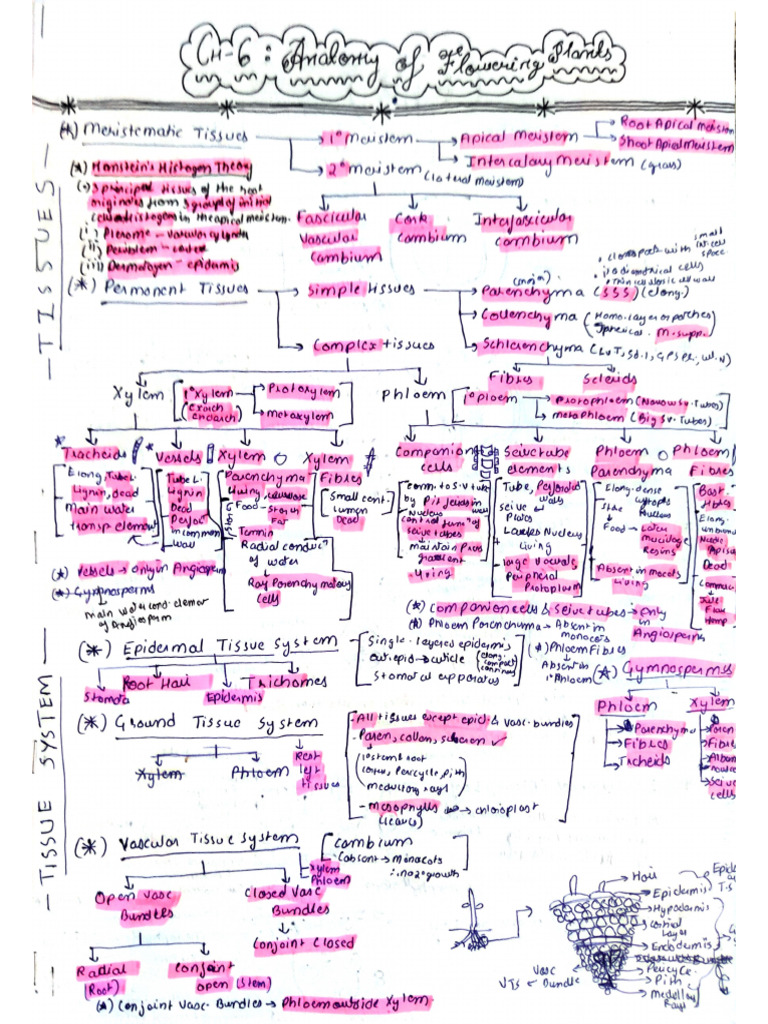 CH-6 : Anatomy of Flowering Plants
- TISSUES -
(*) Meristematic Tissues
1° Meristem
Apical Meristem
Root Apical Meristem
Shoot Apical Meristem
Intercalary Meristem (grass)
2° Meristem (lateral meristem)
Fascicular Vascular Cambium
Cork Cambium
Interfascicular Cambium
(*) Hanstein's Histogen Theory
(→) 3 principal tissues of the root
originates from 3 group of initial
in the apical meristem.
(i) Plerome - vascular cylinder
(ii) Periblem - cortex
(iii) Dermatogen - epidermis
(*) Permanent Tissues
Simple tissues
(major)
Parenchyma (SSS) (elong.)
small
space
isodiametrical cells
Thin cellulosic cell wall
Collenchyma (Homo. layer or patches)
Spherical. M. supp.
Schlerenchyma
Fibres
Scleroids
Complex tissues
Xylem
1° Xylem
(Exarch endarch)
Protoxylem
metaxylem
Phloem
1° ploem
protophloem (Narrow Sv. Tubes)
metaphloem (Big Sv. Tubes)
Tracheids
Elong, Tube
Lignin, dead
main water
transp element
Vessels
Tube
Lignin
Dead
Perfor.
in common
wall
Xylem Parenchyma
Living, cellulose
Food - Starch
Fat
Tannin
Radial conduc of water
Ray Parenchymatous cells
Xylem Fibres
Small cent.
lumen
Dead
Companion cells
conn. to s.v tube
by Pit fields in walls
Nucleus
control func of
seive tubes
maintain Press
gradient
Living
Seive tube elements
Tube, Perforated walls
seive Plates
Lacks Nucleus
Living
large Vacuols
Peripheral
Protoplasm
Phloem Parenchyma
Elong-dense cytopls
Nucleus
Store
Food
Latex
mucilage
Resins
Absent in mocots
Living
Phloem Fibres
Bast
fibres
Elong
unbranch
Needle
Apical
Dead
Commercial
Jute
Flax
Hemp
(*) Vessels → only in Angiosperm
(*) Gymnosperms
main water cond. elemen
of Angiosperm
(*) Companion cells & seive tubes → only in Angiosperms
(*) Phloem Parenchyma → Absent in monocots
(*) Phloem Fibres
Absent in
1° Phloem
(*) Gymnosperms
Phloem
Parenchyma
Fibres
Tracheids
Xylem
Paren
Fibre
Album
Seive
cells
- TISSUE SYSTEM -
(*) Epidermal Tissue System
Single-layered epidermis
out. epid → cuticle (elong. compact continous)
Stomatal apparatus
Stomata
Root Hair
Epidermis
Trichomes
(*) Ground Tissue System
All tissues except epid & vasc. bundles
Paren, collen, scleren ✓
1° stem & root
cortex, Pericycle, pith
medullary rays
mesophylls → chloroplast
(leaves)
Xylem
Phloem
Rest left tissues
(*) Vascular Tissue System
Cambium
(absent → Monocots
∴ no 2° growth
Xylem
Phloem
Open Vasc Bundles
Closed Vasc Bundles
Conjoint Closed
Radial (Root)
Conjoint open (Stem)
(*) Conjoint Vasc. Bundles → Phloem outside Xylem
Hair
Epidermis
Epid
T.S
Hypodermis
Cortical Layer
Endodermis
Pericycle
Pith
Medullary Rays
VTS
Vasc Bundle